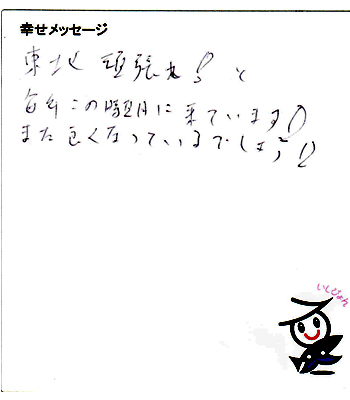 幸せメッセージ
東北頑張れ!と
毎年この時期に来ています!
また良くなっているでしょう!!
いしぴょん